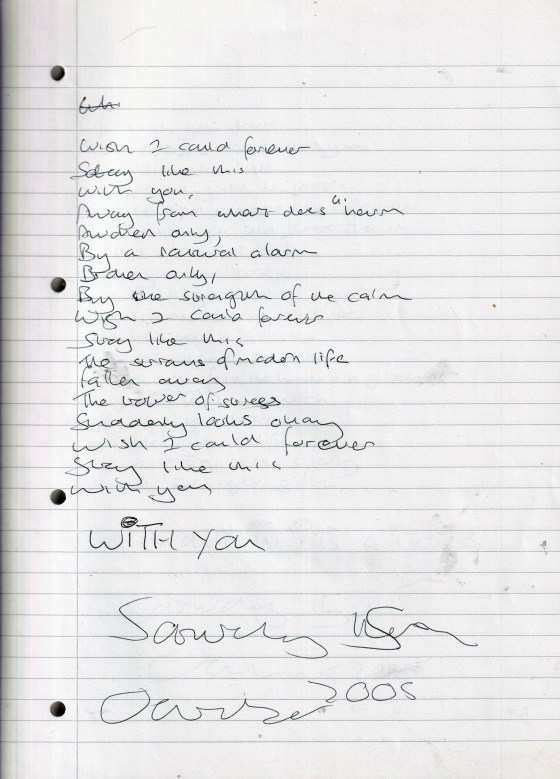 Wish I could forever
Stay like this
With you,
Away from what does "harm
Awoken only,
By a natural alarm
Broken only,
By the strength of the calm
Wish I could forever
Stay like this
The strains of modern life
Fallen away
The tower of stress
Suddenly looks okay
Wish I could forever
Stay like this
With you
WiTH you
2005